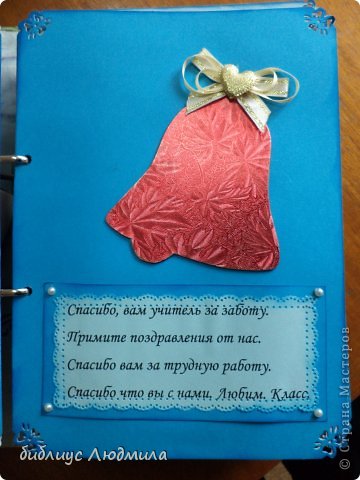 Спасибо, вам учитель за заботу.
Примите поздравления от нас.
Спасибо вам за трудную работу.
Спасибо что вы с нами, Любим. Класс.
библиус Людмила
© Страна Мастеров